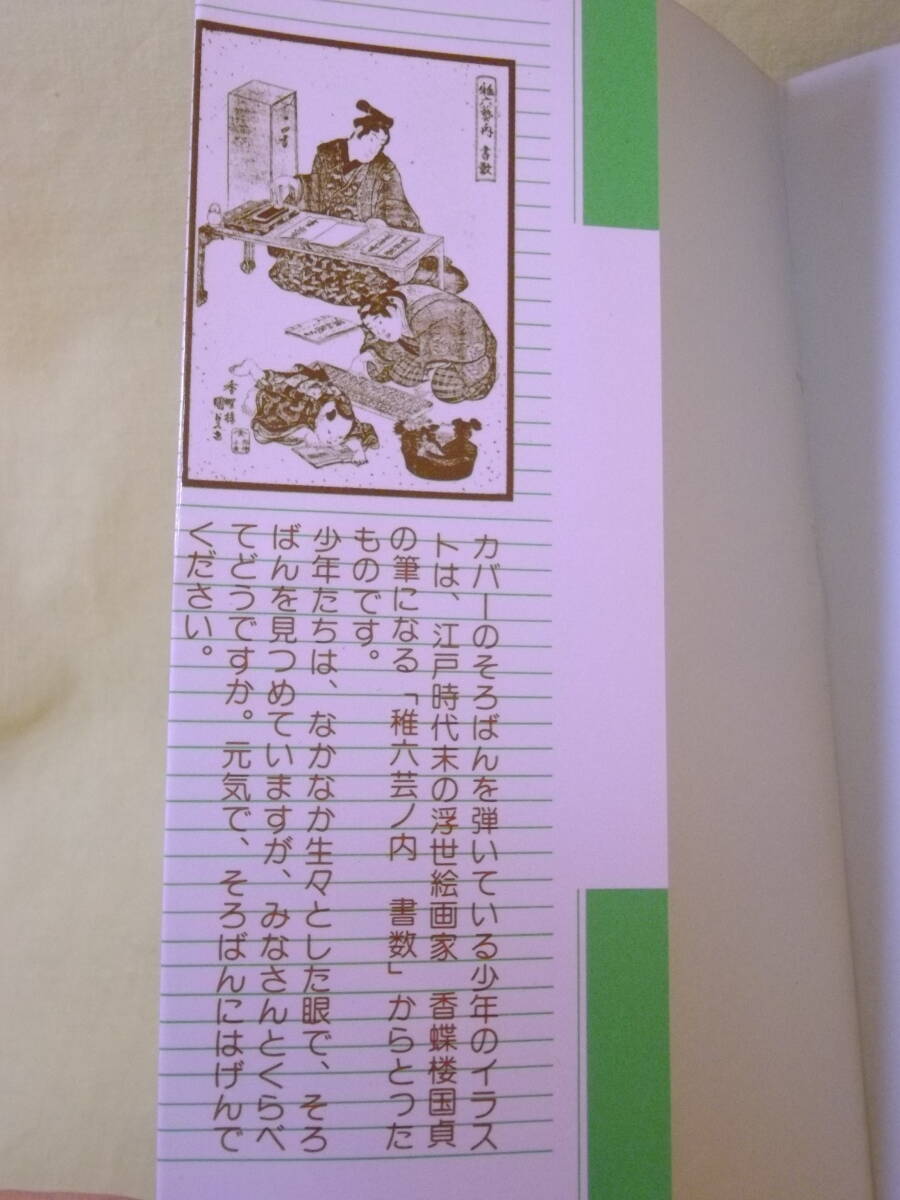 稚六藝ノ内 書數
香蝶楼
國貞画
カバーのそろばんを弾いている少年のイラス
トは、江戸時代末の浮世絵画家 香蝶楼国貞
の筆になる「稚六芸ノ内 書数」からとった
ものです。
少年たちは、なかなか生々とした眼で、そろ
ばんを見つめていますが、みなさんとくらべ
てどうですか。元気で、そろばんにはげんで
ください。